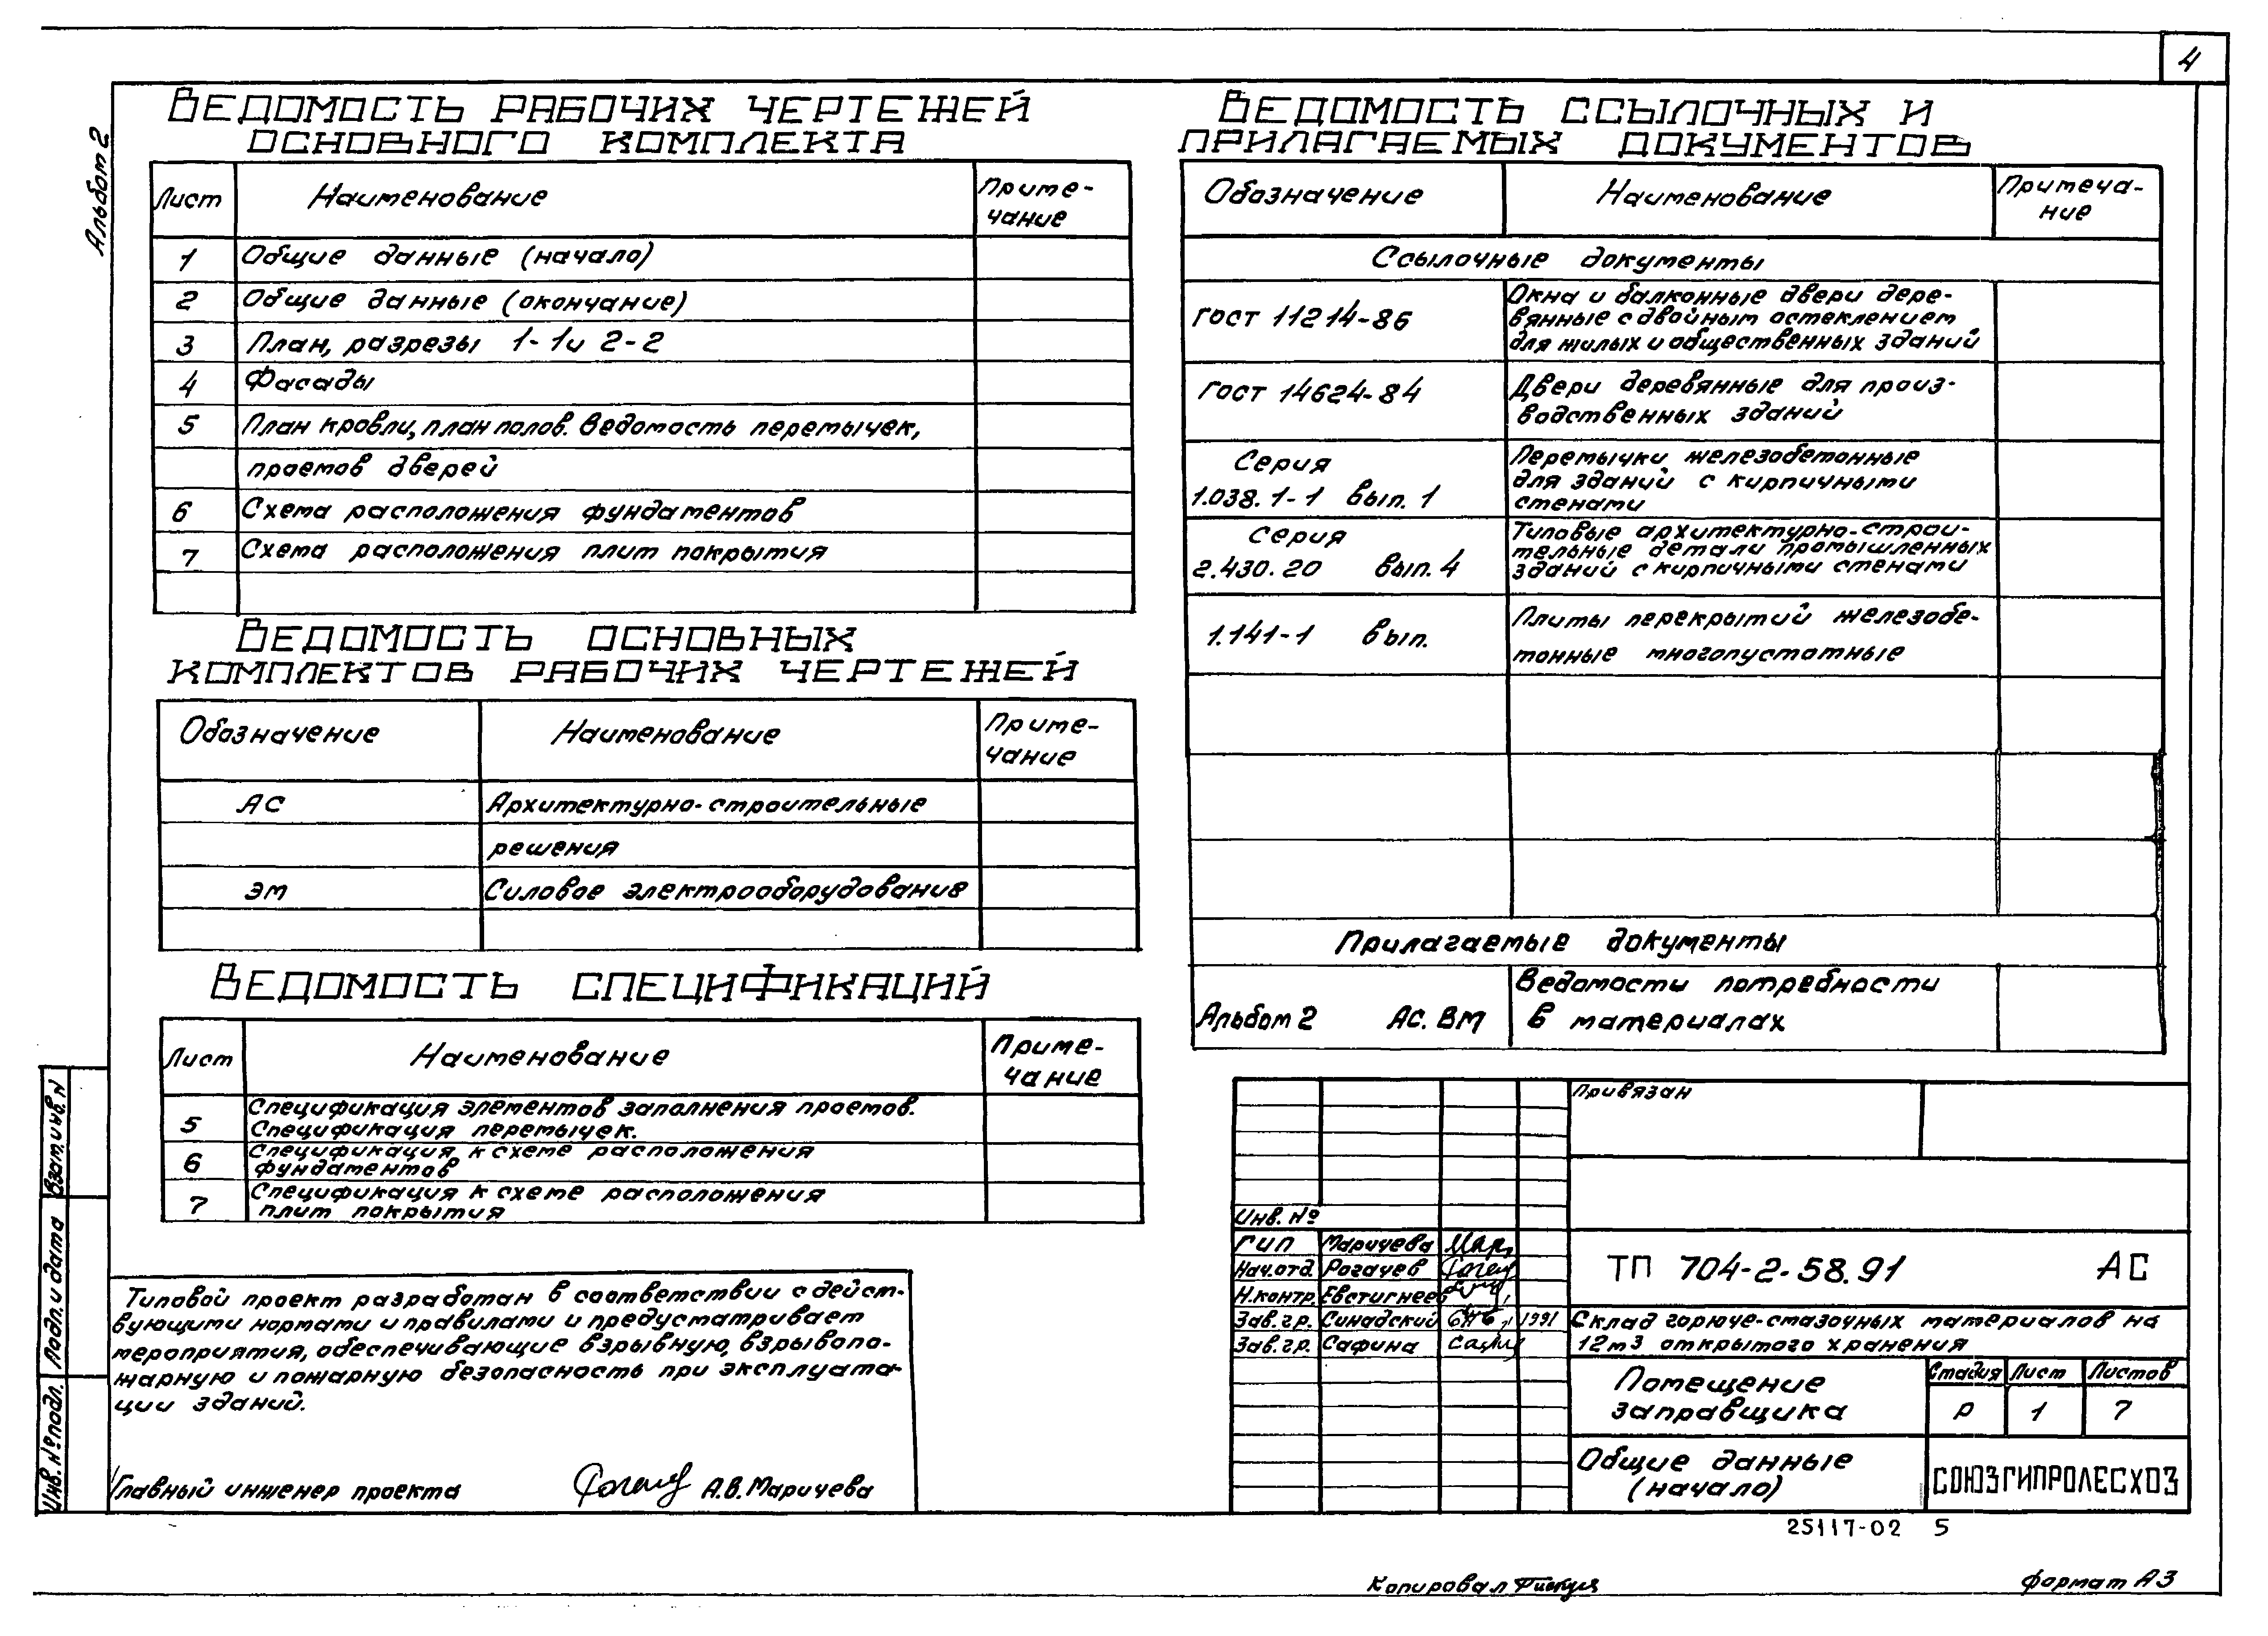 4
Альбом 2
Ведомость рабочих чертежей
основного комплекта
Лист Наименование Приме-
чание
1 Общие данные (начало)
2 Общие данные (окончание)
3 План, разрезы 1-1 и 2-2
4 Фасады
5 План кровли, план полов. Ведомость перемычек,
проемов дверей
6 Схема расположения фундаментов
7 Схема расположения плит покрытия
Ведомость основных
комплектов рабочих чертежей
Обозначение Наименование Приме-
чание
АС Архитектурно-строительные
решения
ЭМ Силовое электрооборудование
Ведомость спецификаций
Лист Наименование Приме-
чание
5 Спецификация элементов заполнения проемов.
Спецификация перемычек.
6 Спецификация к схеме расположения
фундаментов
7 Спецификация к схеме расположения
плит покрытия
Типовой проект разработан в соответствии с дейст-
вующими нормами и правилами и предусматривает
мероприятия, обеспечивающие взрывную, взрывопо-
жарную и пожарную безопасность при эксплуата-
ции зданий.
Главный инженер проекта А.В. Маричева
Взам. инв. N
Подп. и дата
Инв. № подл.
Ведомость ссылочных и
прилагаемых документов
Обозначение Наименование Примеча-
ние
Ссылочные документы
ГОСТ 11214-86 Окна и балконные двери дере-
вянные с двойным остеклением
для жилых и общественных зданий
ГОСТ 14624-84 Двери деревянные для произ-
водственных зданий
Серия
1.038.1-1 вып. 1 Перемычки железобетонные
для зданий с кирпичными
стенами
Серия
2.430.20 вып. 4 Типовые архитектурно-строи-
тельные детали промышленных
зданий с кирпичными стенами
1.141-1 вып. Плиты перекрытий железобе-
тонные многопустотные
Прилагаемые документы
Альбом 2 АС. ВМ Ведомости потребности
в материалах
Привязан
Инв. №
ГИП Маричева
Нач.отд. Рогачев
Н.контр. Евстигнеев
Зав.гр. Синадский 1991
Зав.гр. Сафина
ТП 704-2-58.91 АС
Склад горюче-смазочных материалов на
12м3 открытого хранения
Помещение
заправщика
Стадия Лист Листов
Р 1 7
Общие данные
(начало)
СОЮЗГИПРОЛЕСХОЗ
25117-02 5
Копировал
Формат А3